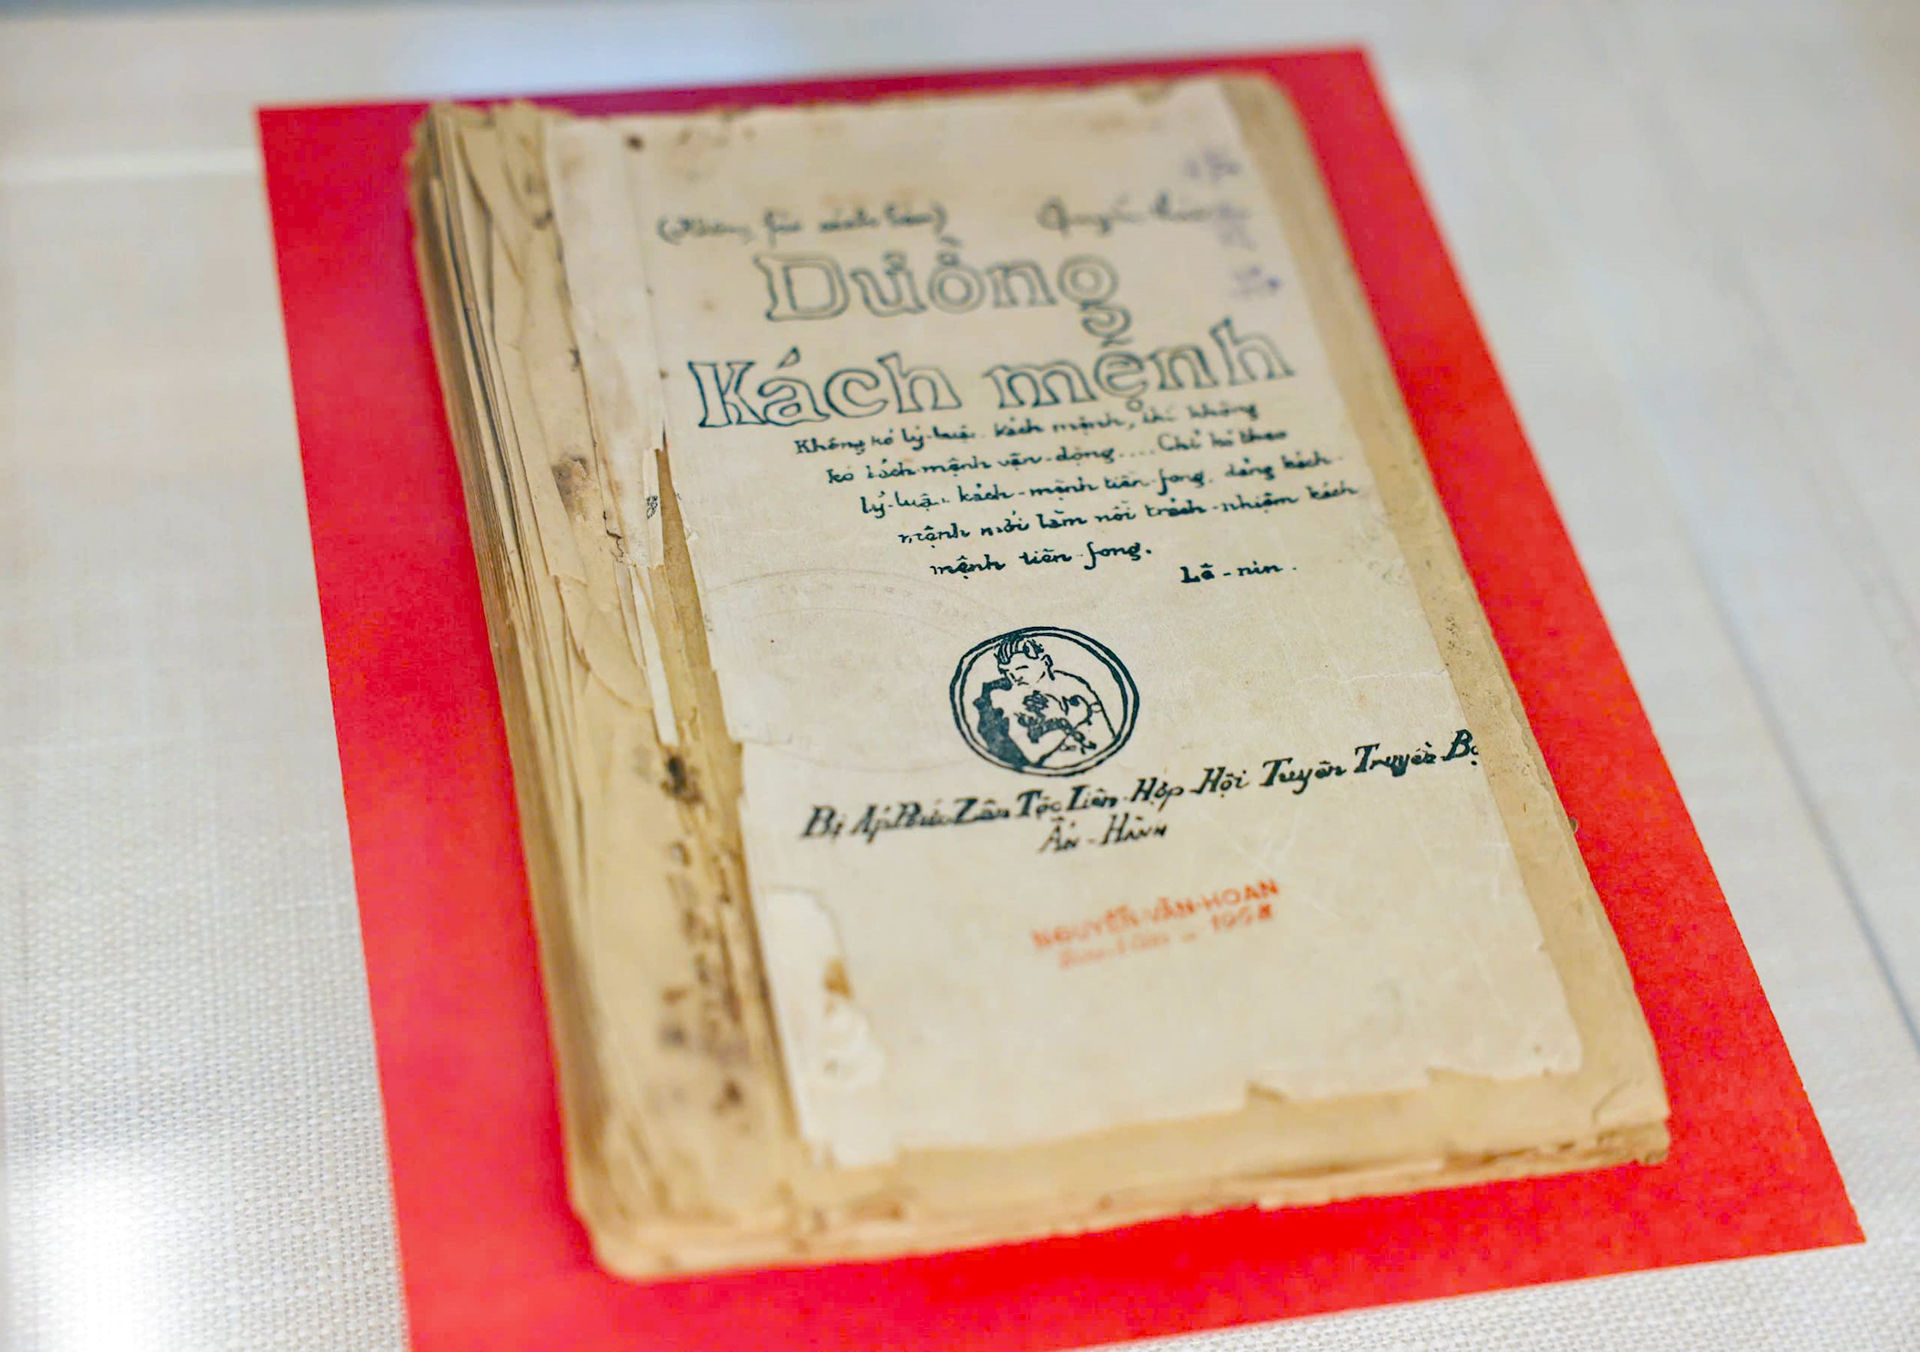 Đường
Kách mệnh
Không kó lý-luận kách mệnh, thì không
kó kách mệnh vận-động.... Chỉ kó theo
lý-luận kách-mệnh tiền-fong, đảng kách
mệnh mới làm nổi trách-nhiệm kách
mệnh tiền-fong.
Lê-nin.
Bị Áp Bức Zân Tộc Liên-Hợp-Hội Tuyên Truyền Bộ
Ấn-Hành
NGUYỄN-VĂN-HOAN